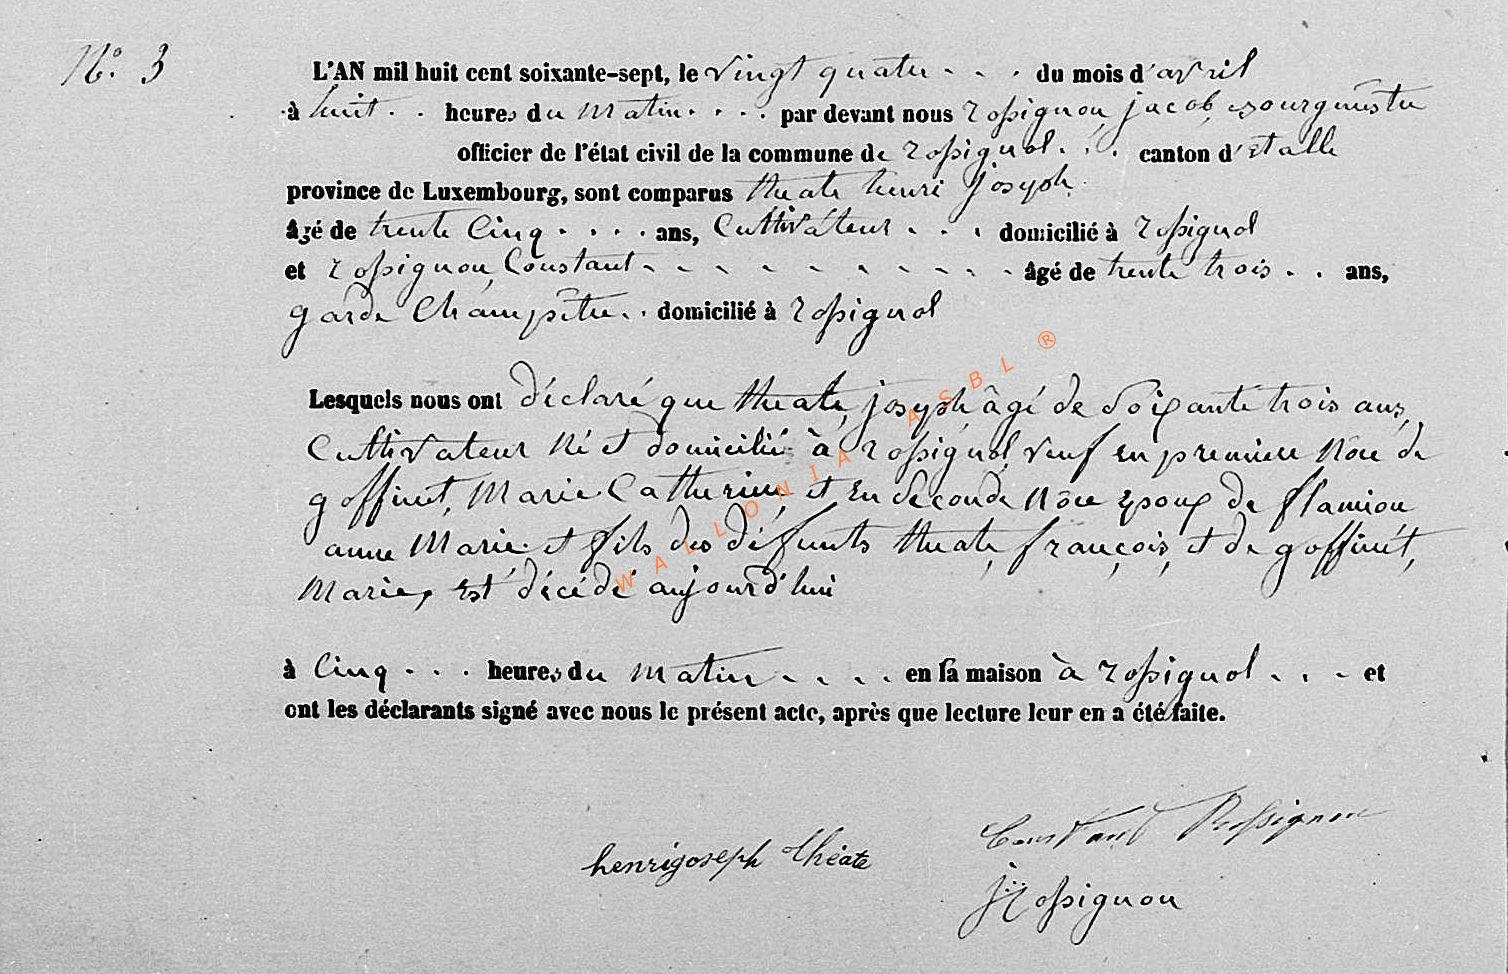 N.° 3
L'AN mil huit cent soixante-sept, le vingt quatre - - . du mois d'avril
à huit . . heures du matin . . . . par devant nous rossignon, jacob, bourguestre
officier de l'état civil de la commune de rossignol . . . canton d'étalle
province de Luxembourg, sont comparus theate henri joseph
âgé de trente cinq . . . . ans, Cultivateur . . . domicilié à rossignol
et rossignon, Constant - - - - - - - - - - âgé de trente trois . . ans,
garde Champêtre . . domicilié à rossignol
Lesquels nous ont déclaré que theate, joseph, âgé de soixante trois ans,
Cultivateur né et domicilié à rossignol, veuf en premiere nôce de
goffinet, Marie Catherine, et en seconde nôce époux de flamion
anne Marie et fils des défunts theate, françois, et de goffinét,
Marie, est décédé aujourd'hui
à Cinq . . . heures du matin . . . . en sa maison à rossignol . . . et
ont les déclarants signé avec nous le présent acte, après que lecture leur en a été faite.
WALLONIA ASBL ®
henrijoseph théate
Constant Rossignon
j rossignon